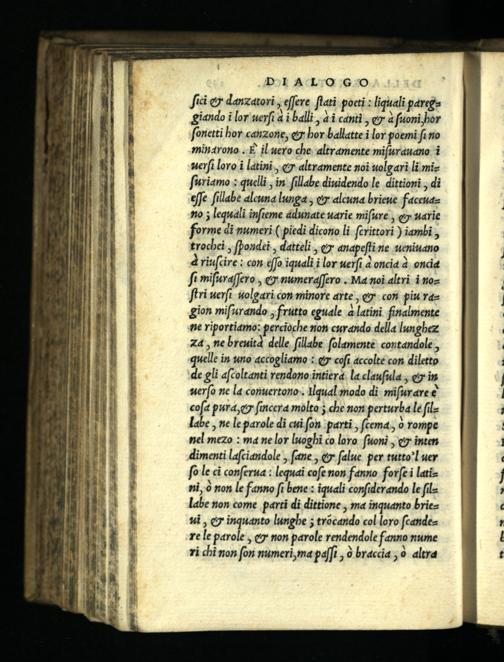 DIALOGO
sici & danzatori, essere stati poeti: liquali pareg=
giando i lor versi à i balli, à i canti, & à suoni, hor
sonetti hor canzone, & hor ballatte i lor poemi si no
minarono. E' il vero che altramente misuravano i
versi loro i latini, & altramente noi volgari li mi=
suriamo: quelli, in sillabe dividendo le dittioni, di
esse sillabe alcuna lunga, & alcuna brieve faceva=
no; lequali insieme adunate varie misure, & varie
forme di numeri (piedi dicono li scrittori) iambi,
trochei, spondei, datteli, & anapesti ne venivano
à riuscire: con esso iquali i lor versi à oncia à oncia
si misurassero, & numerassero. Ma noi altri i no=
stri versi volgari con minore arte, & con piu ra=
gion misurando, frutto eguale à latini finalmente
ne riportiamo: percioche non curando della lunghez
za, ne brevità delle sillabe solamente contandole,
quelle in uno accogliamo: & cosi accolte con diletto
de gli ascoltanti rendono intiera la clausula, & in
verso ne la convertono. Ilqual modo di misurare è
cosa pura, & sincera molto; che non perturba le sil=
labe, ne le parole di cui son parti, scema, ò rompe
nel mezo: ma ne lor luoghi co loro suoni, & inten
dimenti lasciandole, sane, & salve per tutto'l ver
so le ci conserva: lequai cose non fanno forse i lati=
ni, ò non le fanno si bene: iquali considerando le sil=
labe non come parti di dittione, ma inquanto brie=
vi, & inquanto lunghe; trōcando col loro scande=
re le parole, & non parole rendendole fanno nume
ri chi non son numeri, ma passi, ò braccia, ò altra